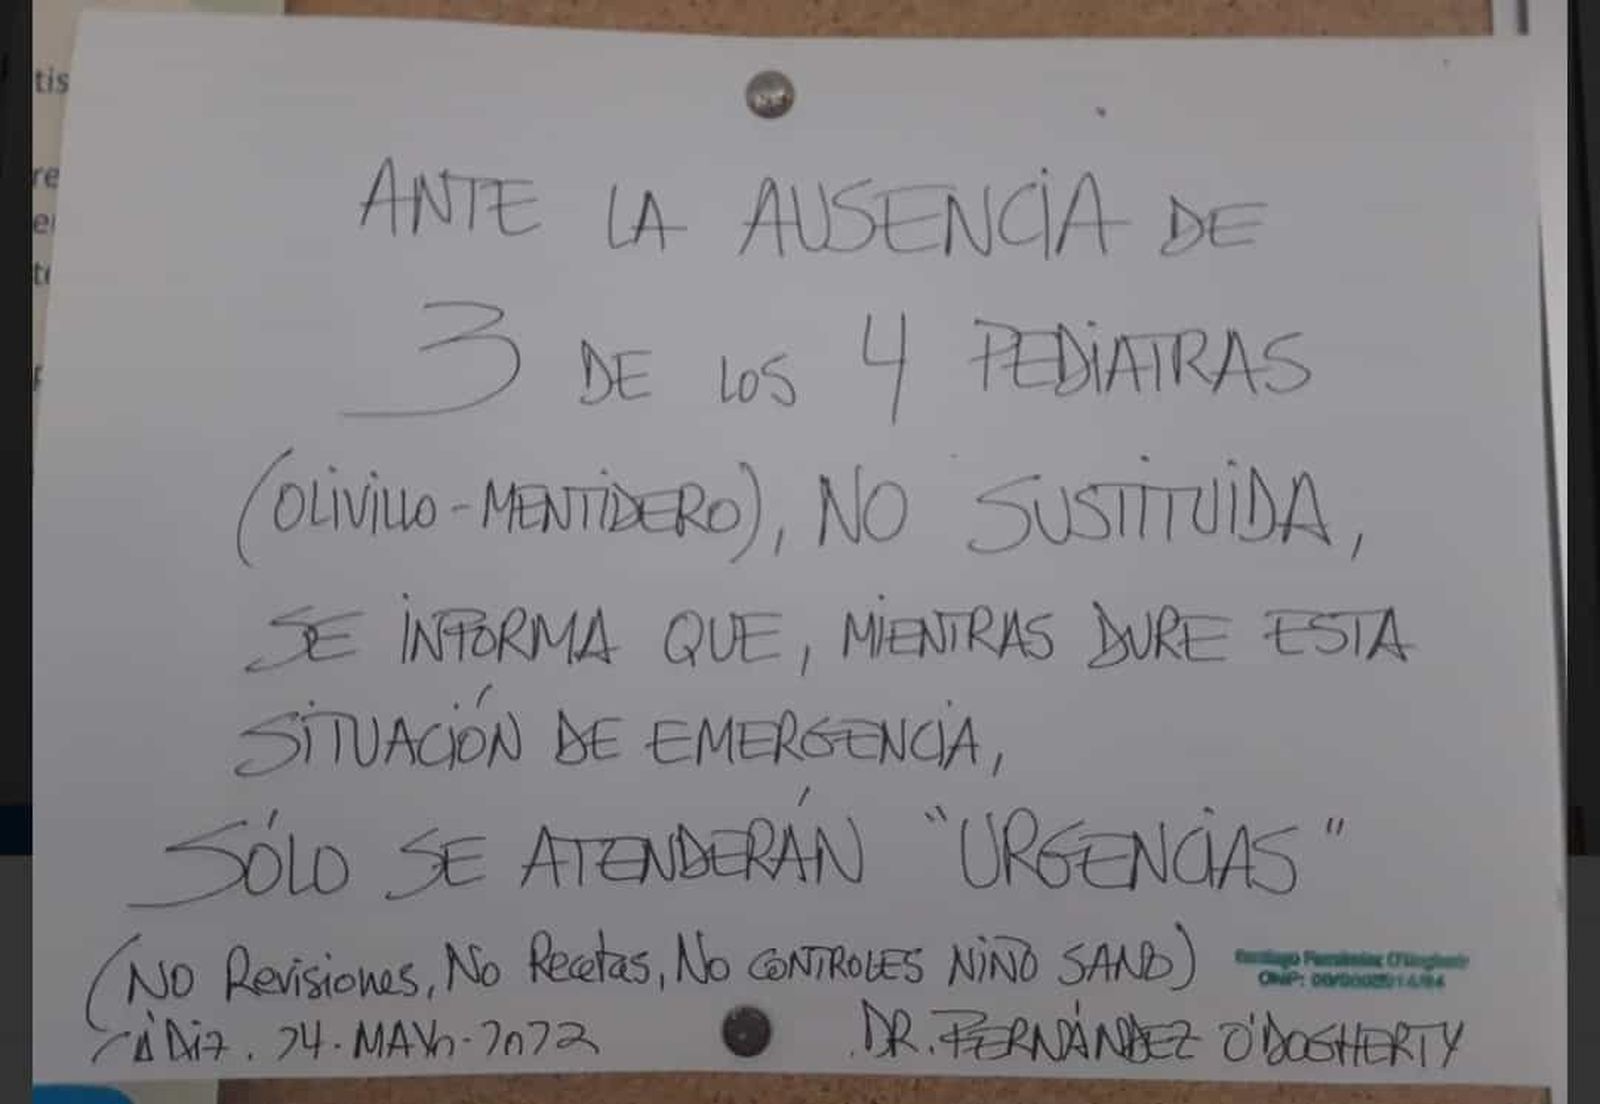 ANTE LA AUSENCIA DE
3 DE LOS 4 PEDIATRAS
(OLIVILLO-MENTIDERO), NO SUSTITUIDA,
SE INFORMA QUE, MIENTRAS DURE ESTA
SITUACIÓN DE EMERGENCIA,
SÓLO SE ATENDERÁN "URGENCIAS"
(NO Revisiones, No Recetas, No CONTROLES NIÑO SANO)
Santiago Fernández O'Dogherty
CÁDIZ. 24. MAYO. 2022
DR. FERNÁNDEZ O'DOGHERTY